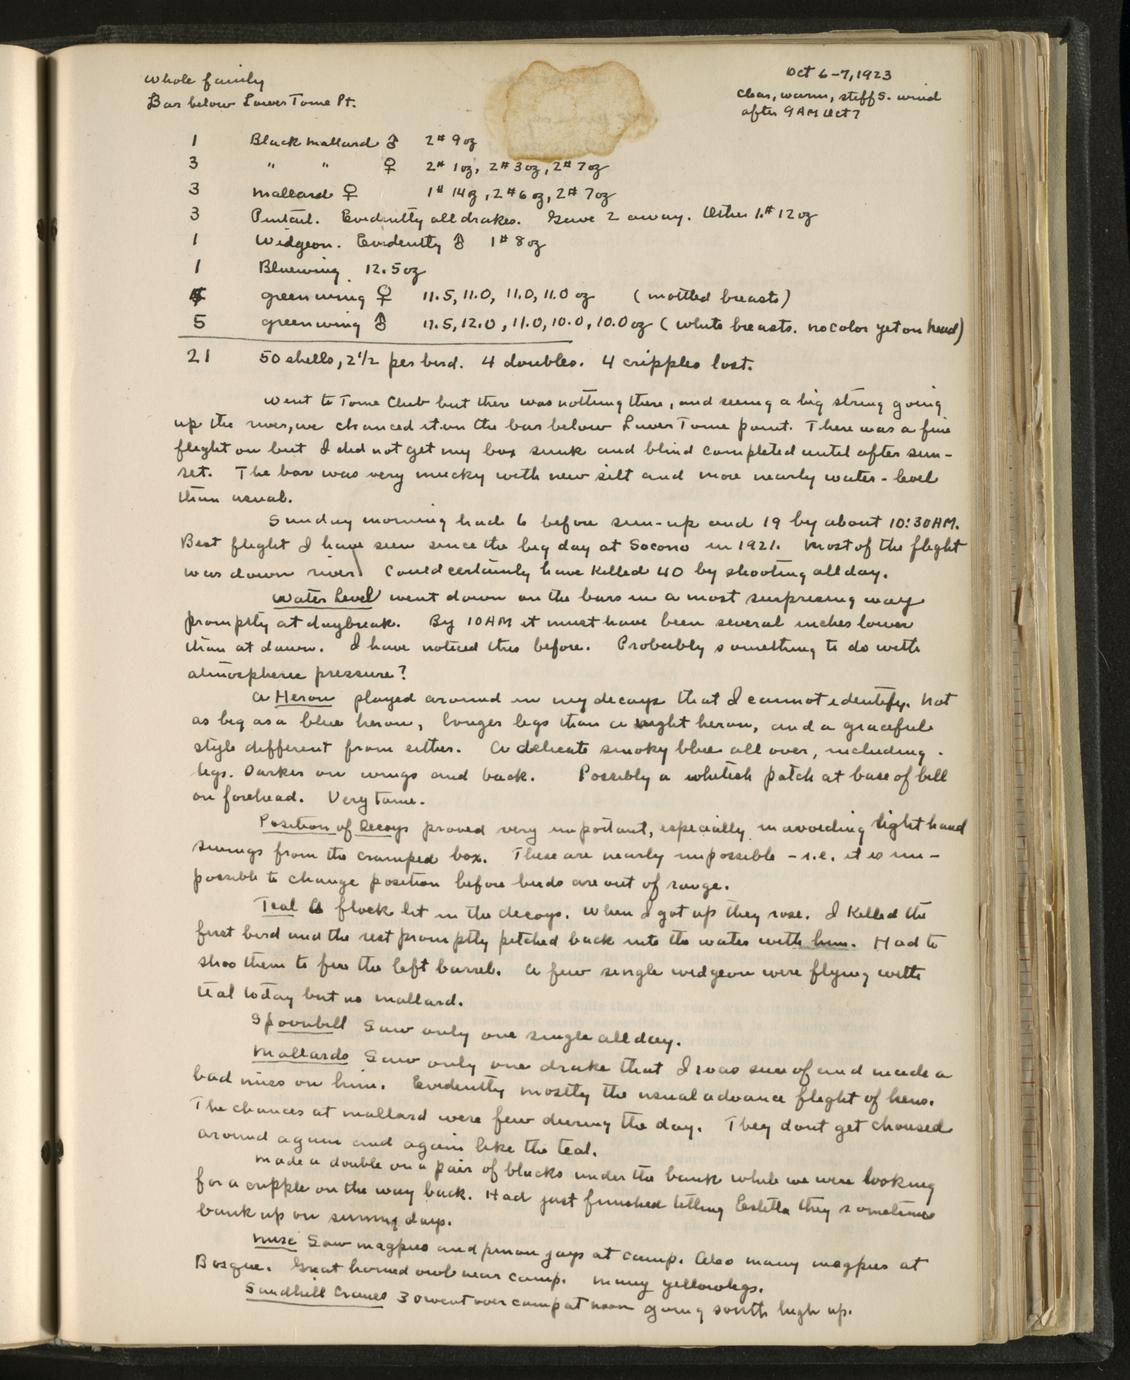 Whole family
Oct 6-7, 1923
Bar below Lower Tome Pt.
Clear, warm, stiff S. wind
after 9 AM Oct 7
1 Black mallard ♂ 2# 9oz
3 " " ♀ 2# 1oz, 2# 3oz, 2# 7oz
3 Mallard ♀ 1# 14oz, 2# 6oz, 2# 7oz
3 Pintail. Evidently all drakes. Gave 2 away. Other 1# 12oz
1 Widgeon. Evidently ♂ 1# 8oz
1 Bluewing 12.5oz
4 greenwing ♀ 11.5, 11.0, 11.0, 11.0 oz (mottled breasts)
5 greenwing ♂ 11.5, 12.0, 11.0, 10.0, 10.0oz (white breasts. no color yet on head)
21 50 shells, 2 1/2 per bird. 4 doubles. 4 cripples lost.
Went to Tome Club but there was nothing there, and seeing a big string going
up the river, we chanced it on the bar below Lower Tome point. There was a fine
flight on but I did not get my box sunk and blind completed until after sun-
set. The bar was very mucky with new silt and more nearly water-level
than usual.
Sunday morning had 6 before sun-up and 19 by about 10:30 AM.
Best flight I have seen since the big day at Socorro in 1921. Most of the flight
was down river. Could certainly have killed 40 by shooting all day.
Water Level went down on the bars in a most surprising way
promptly at daybreak. By 10 AM it must have been several inches lower
than at dawn. I have noticed this before. Probably something to do with
atmospheric pressure?
A Heron played around in my decoys that I cannot identify. Not
as big as a blue heron, longer legs than a night heron, and a graceful
style different from either. A delicate smoky blue all over, including
legs. Darker on wings and back. Possibly a whitish patch at base of bill
on forehead. Very tame.
Position of Decoys proved very important, especially in avoiding right hand
swings from the cramped box. These are nearly impossible - i.e. it is im-
possible to change position before birds are out of range.
Teal A flock lit in the decoys. When I got up they rose. I killed the
first bird and the rest promptly pitched back into the water with him. Had to
shoo them to fire the left barrel. A few single widgeon were flying with
teal today but no mallard.
Spoonbill Saw only one single all day.
Mallards Saw only one drake that I was sure of and made a
bad miss on him. Evidently mostly the usual advance flight of hens.
The chances at mallard were few during the day. They dont get choused
around again and again like the teal.
Made a double on a pair of blacks under the bank while we were looking
for a cripple on the way back. Had just finished telling Estella they sometimes
bank up on sunny days.
Misc Saw magpies and pinon jays at camp. Also many magpies at
Bosque. Great horned owl near camp. Many yellowlegs.
Sandhill Cranes 30 went over camp at noon going south high up.